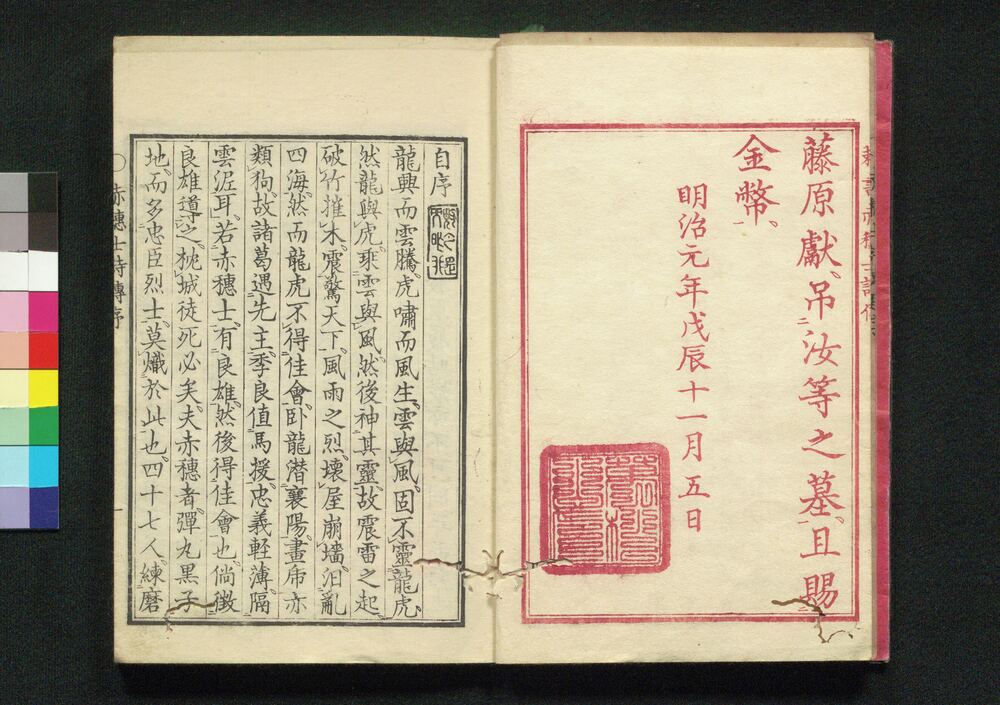 藤原獻、吊汝等之墓、且賜
金幣、
明治元年戊辰十一月五日
自序
龍興而雲騰、虎嘯而風生、雲與風、固不靈龍虎、
然龍與虎、乘雲與風、然後神其靈、故震雷之起、
破竹摧木、震驚天下、風雨之烈、壞屋崩墻、汨亂
四海、然而龍虎不得佳會、臥龍潜襄陽、畫虎亦
類狗、故諸葛遇先主、季良值馬援、忠義軽薄、隔
雲泥耳、若赤穗士、有良雄、然後得佳會也、倘微
良雄導之、枕城徒死必矣、夫赤穗者、彈丸黒子
地、而多忠臣烈士、莫熾於此也、四十七人、練磨
赤穗士詩傳序
一